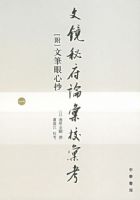 文鏡秘府論彙校彙考
［附］文筆眼心抄
［日］遍照金剛 撰
盧盛江 校考
一
中華書局